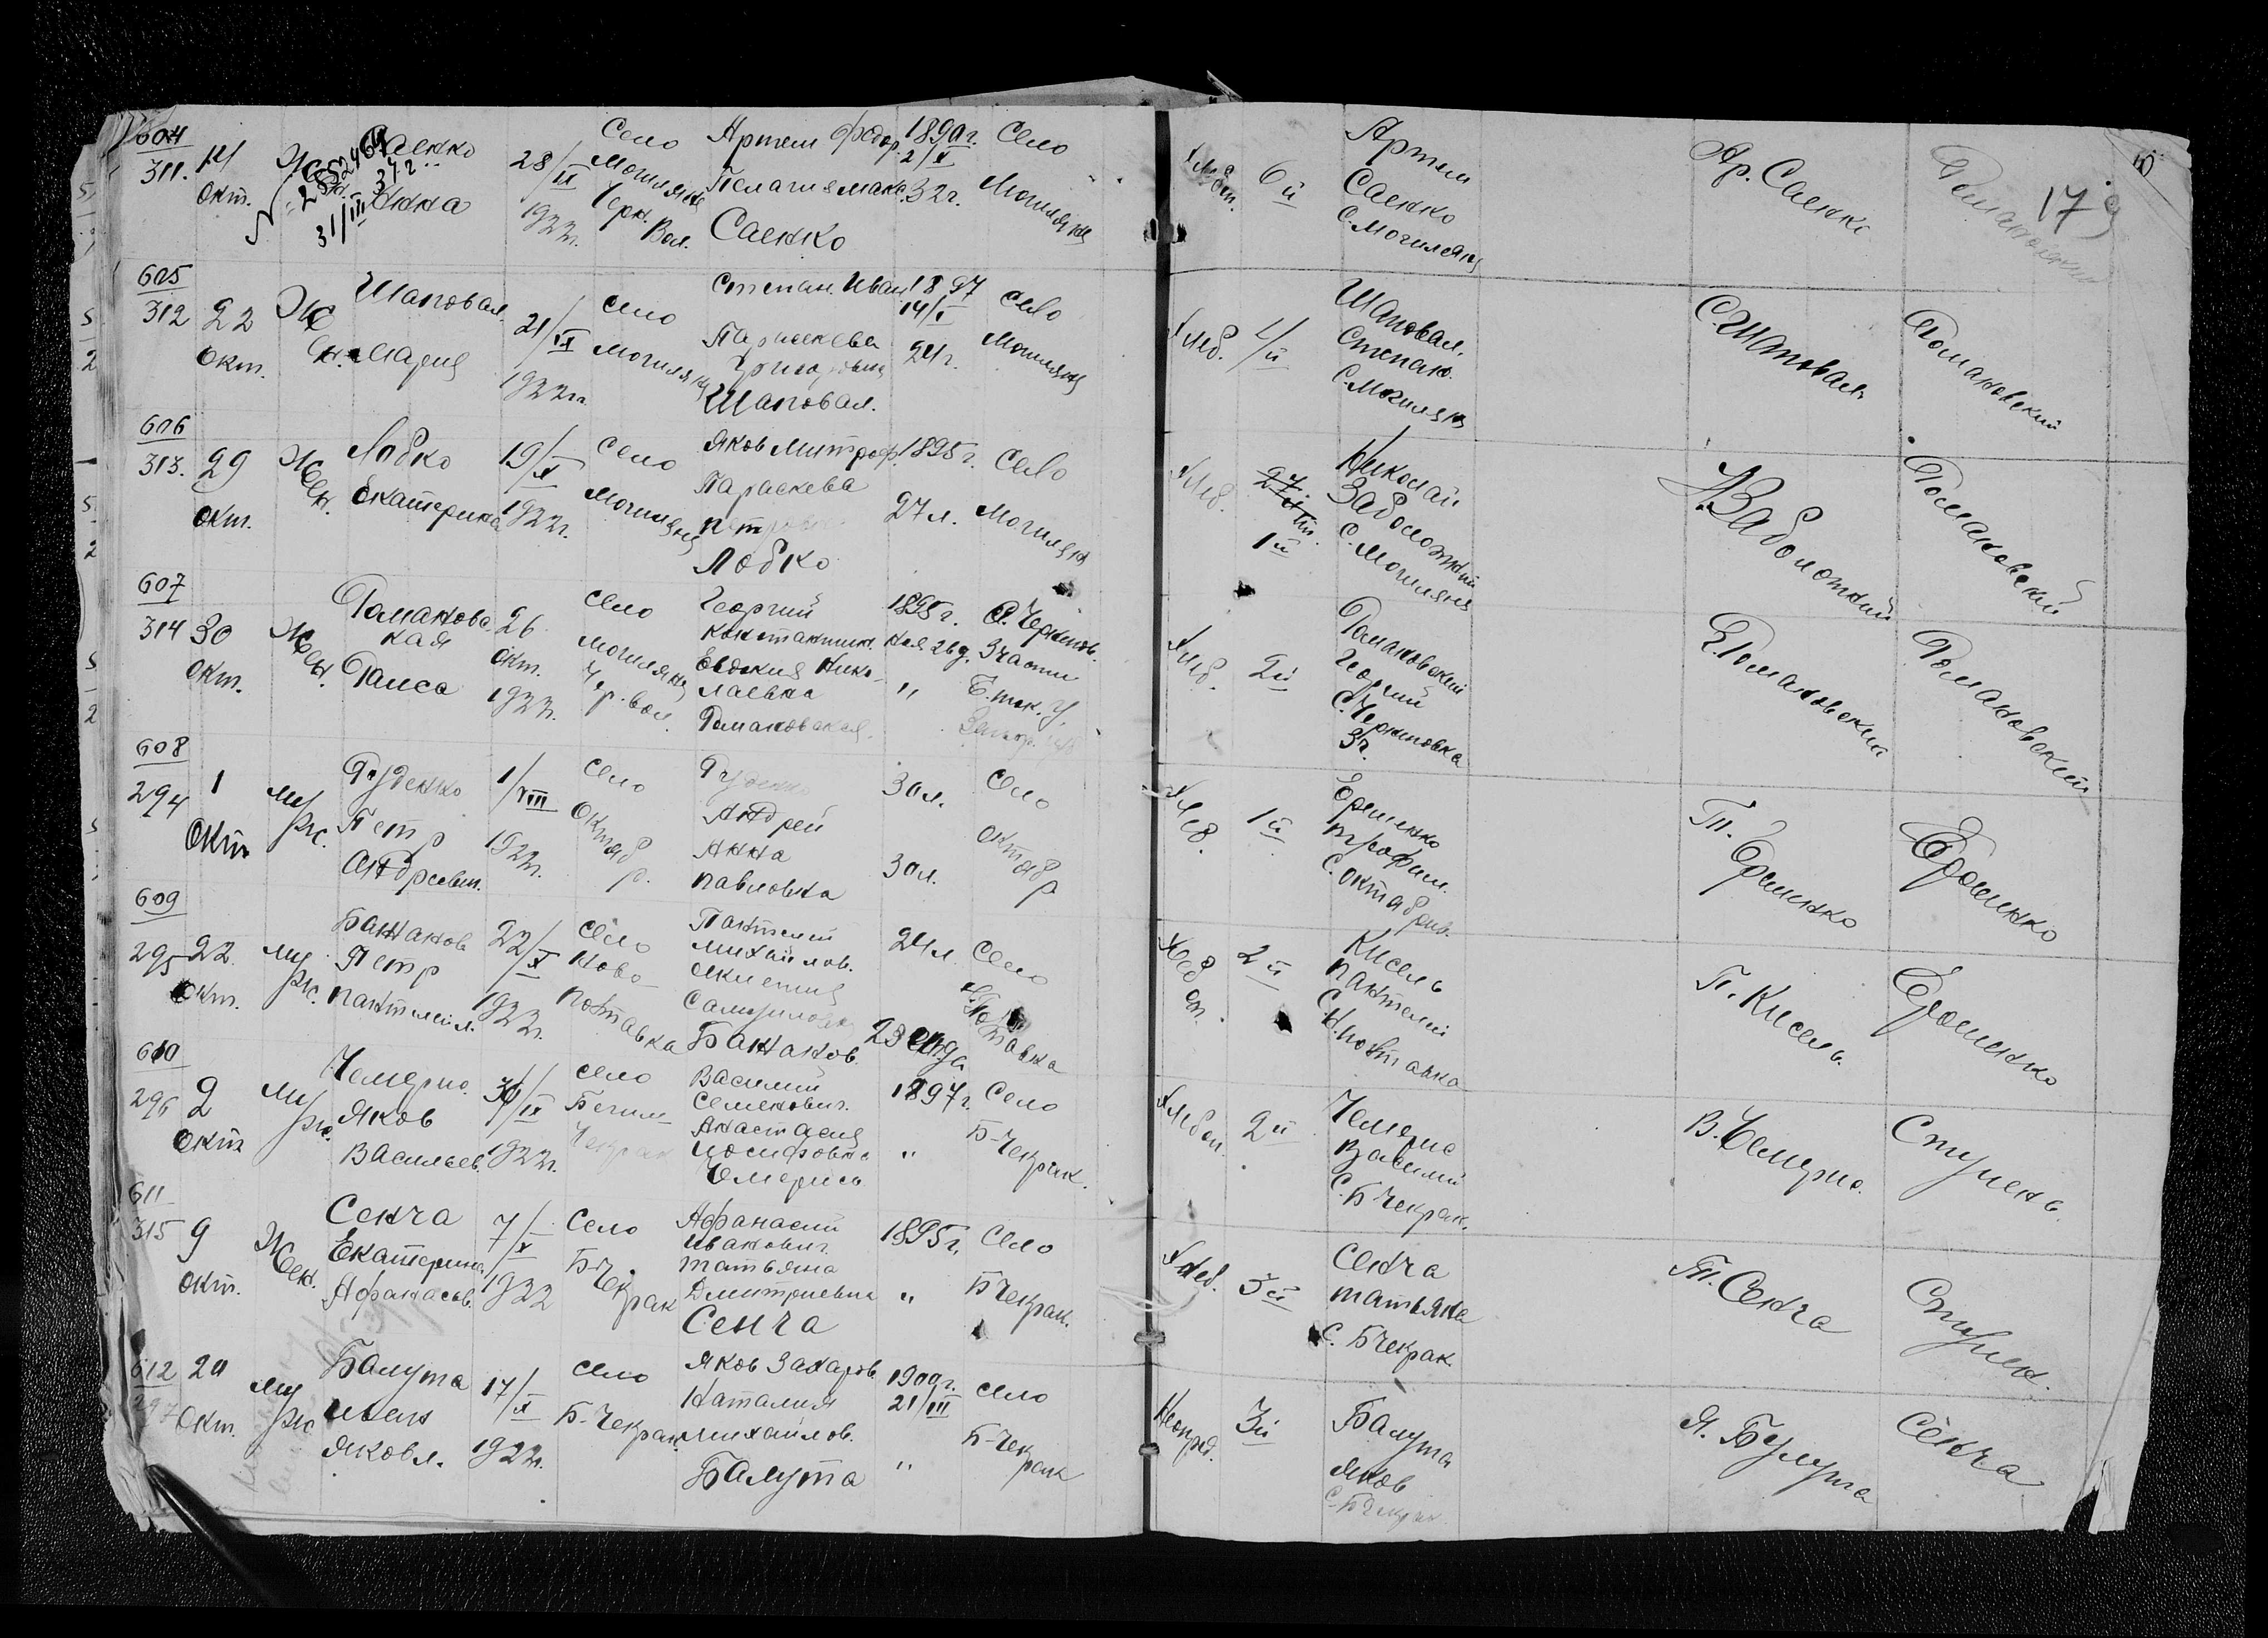 604
311. 14 Окт.
Жен.
№ 2852464
31/III 37 г.
Саенко
Анна
28/IX 1922 г.
Село Могиляны Черн. Вол.
Артем Федор.
Пелагия Макс.
Саенко
1890 г. 2/X
32 г.
Село Могиляны
Хлеб.
6й
Артем
Саенко
С. Могиляны
Ар. Саенко
179
605
312 22 Окт.
Жен.
Шаповал.
Мария
21/IX 1922 г.
Село Могиляны
Степан. Иван.
Параскева
Григоровна
Шаповал.
1897 14/I
24 г.
Село Могиляны
Хлеб.
Шаповал.
Степан.
С. Могиляны
С. Шаповал
Романовский
606
313. 29 Окт.
Жен.
Лобко
Екатерина
19/X 1922 г.
Село Могиляны
Яков Митроф.
Параскева
Петровна
Лобко
1895 г.
27 л.
Село Могиляны
Хлеб.
1й
Николай
Заболотний
С. Могиляны
Н. Заболотний
Романовский
607
314 30 Окт.
Жен.
Романовская
Раиса
26 Окт. 1922 г.
Село Могиляны Чер. вол.
Георгий
Константин.
Евдокия Николаевна
Романовская.
1895 г.
"
Хлеб.
2й
Романовский
Георгий
С. Черниговка
3 ч.
Г. Романовский
Романовский
608
294 1 Окт.
Муж.
Руденко
Петр
Андреевич.
1/VIII 1922 г.
Село Октябр.
Руденко
Андрей
Анна
Павловна
30 л.
30 л.
Село Октябр
Хлеб.
1й
Ерошенко
Трофим.
С. Октябрив.
Т. Ерошенко
Ерошенко
609
295 22 Окт.
Муж.
Петр
Пантелей.
22/X 1922 г.
Село Ново Полтавка
Пантелей
Михайлов.
Самуиловна
24 л.
23 года
Село
Н. Полтавка
Хлеб.
2й
Кисель
Пантелей
С. Н. Полтавка
П. Кисель.
Ерошенко
610
296 2 Окт.
Муж.
Чемерис.
Яков
Васильев.
1922 г.
Село Бегим Чекрак
Василий
Семенович.
Анастасия
Иосифовна
Чемерис
1897 г.
"
Село Б-Чекрак.
2й
Чемерис
Василий
С. Б Чекрак.
В. Чемерис.
611
315 9 Окт.
Жен.
Сенча
Екатерина
Афанасьев.
7/X 1922
Село Б-Чекрак
Афанасий
Иванович.
Татьяна
Дмитриевна
Сенча
1895 г.
"
Село Б Чекрак.
Хлеб.
3й
Сенча
Татьяна
С. Б Чекрак.
Т. Сенча
612
297 20 Окт.
Муж
Балута
Иван
Яковл.
17/X 1922 г.
Село Б-Чекрак.
Яков Захаров
Наталия
Михайлов.
Балута
1900 г. 21/III
"
Село Б-Чекрак
Неопред.
3й
Балута
Яков
С. Б Чекрак.
Я. Булута
Сенча